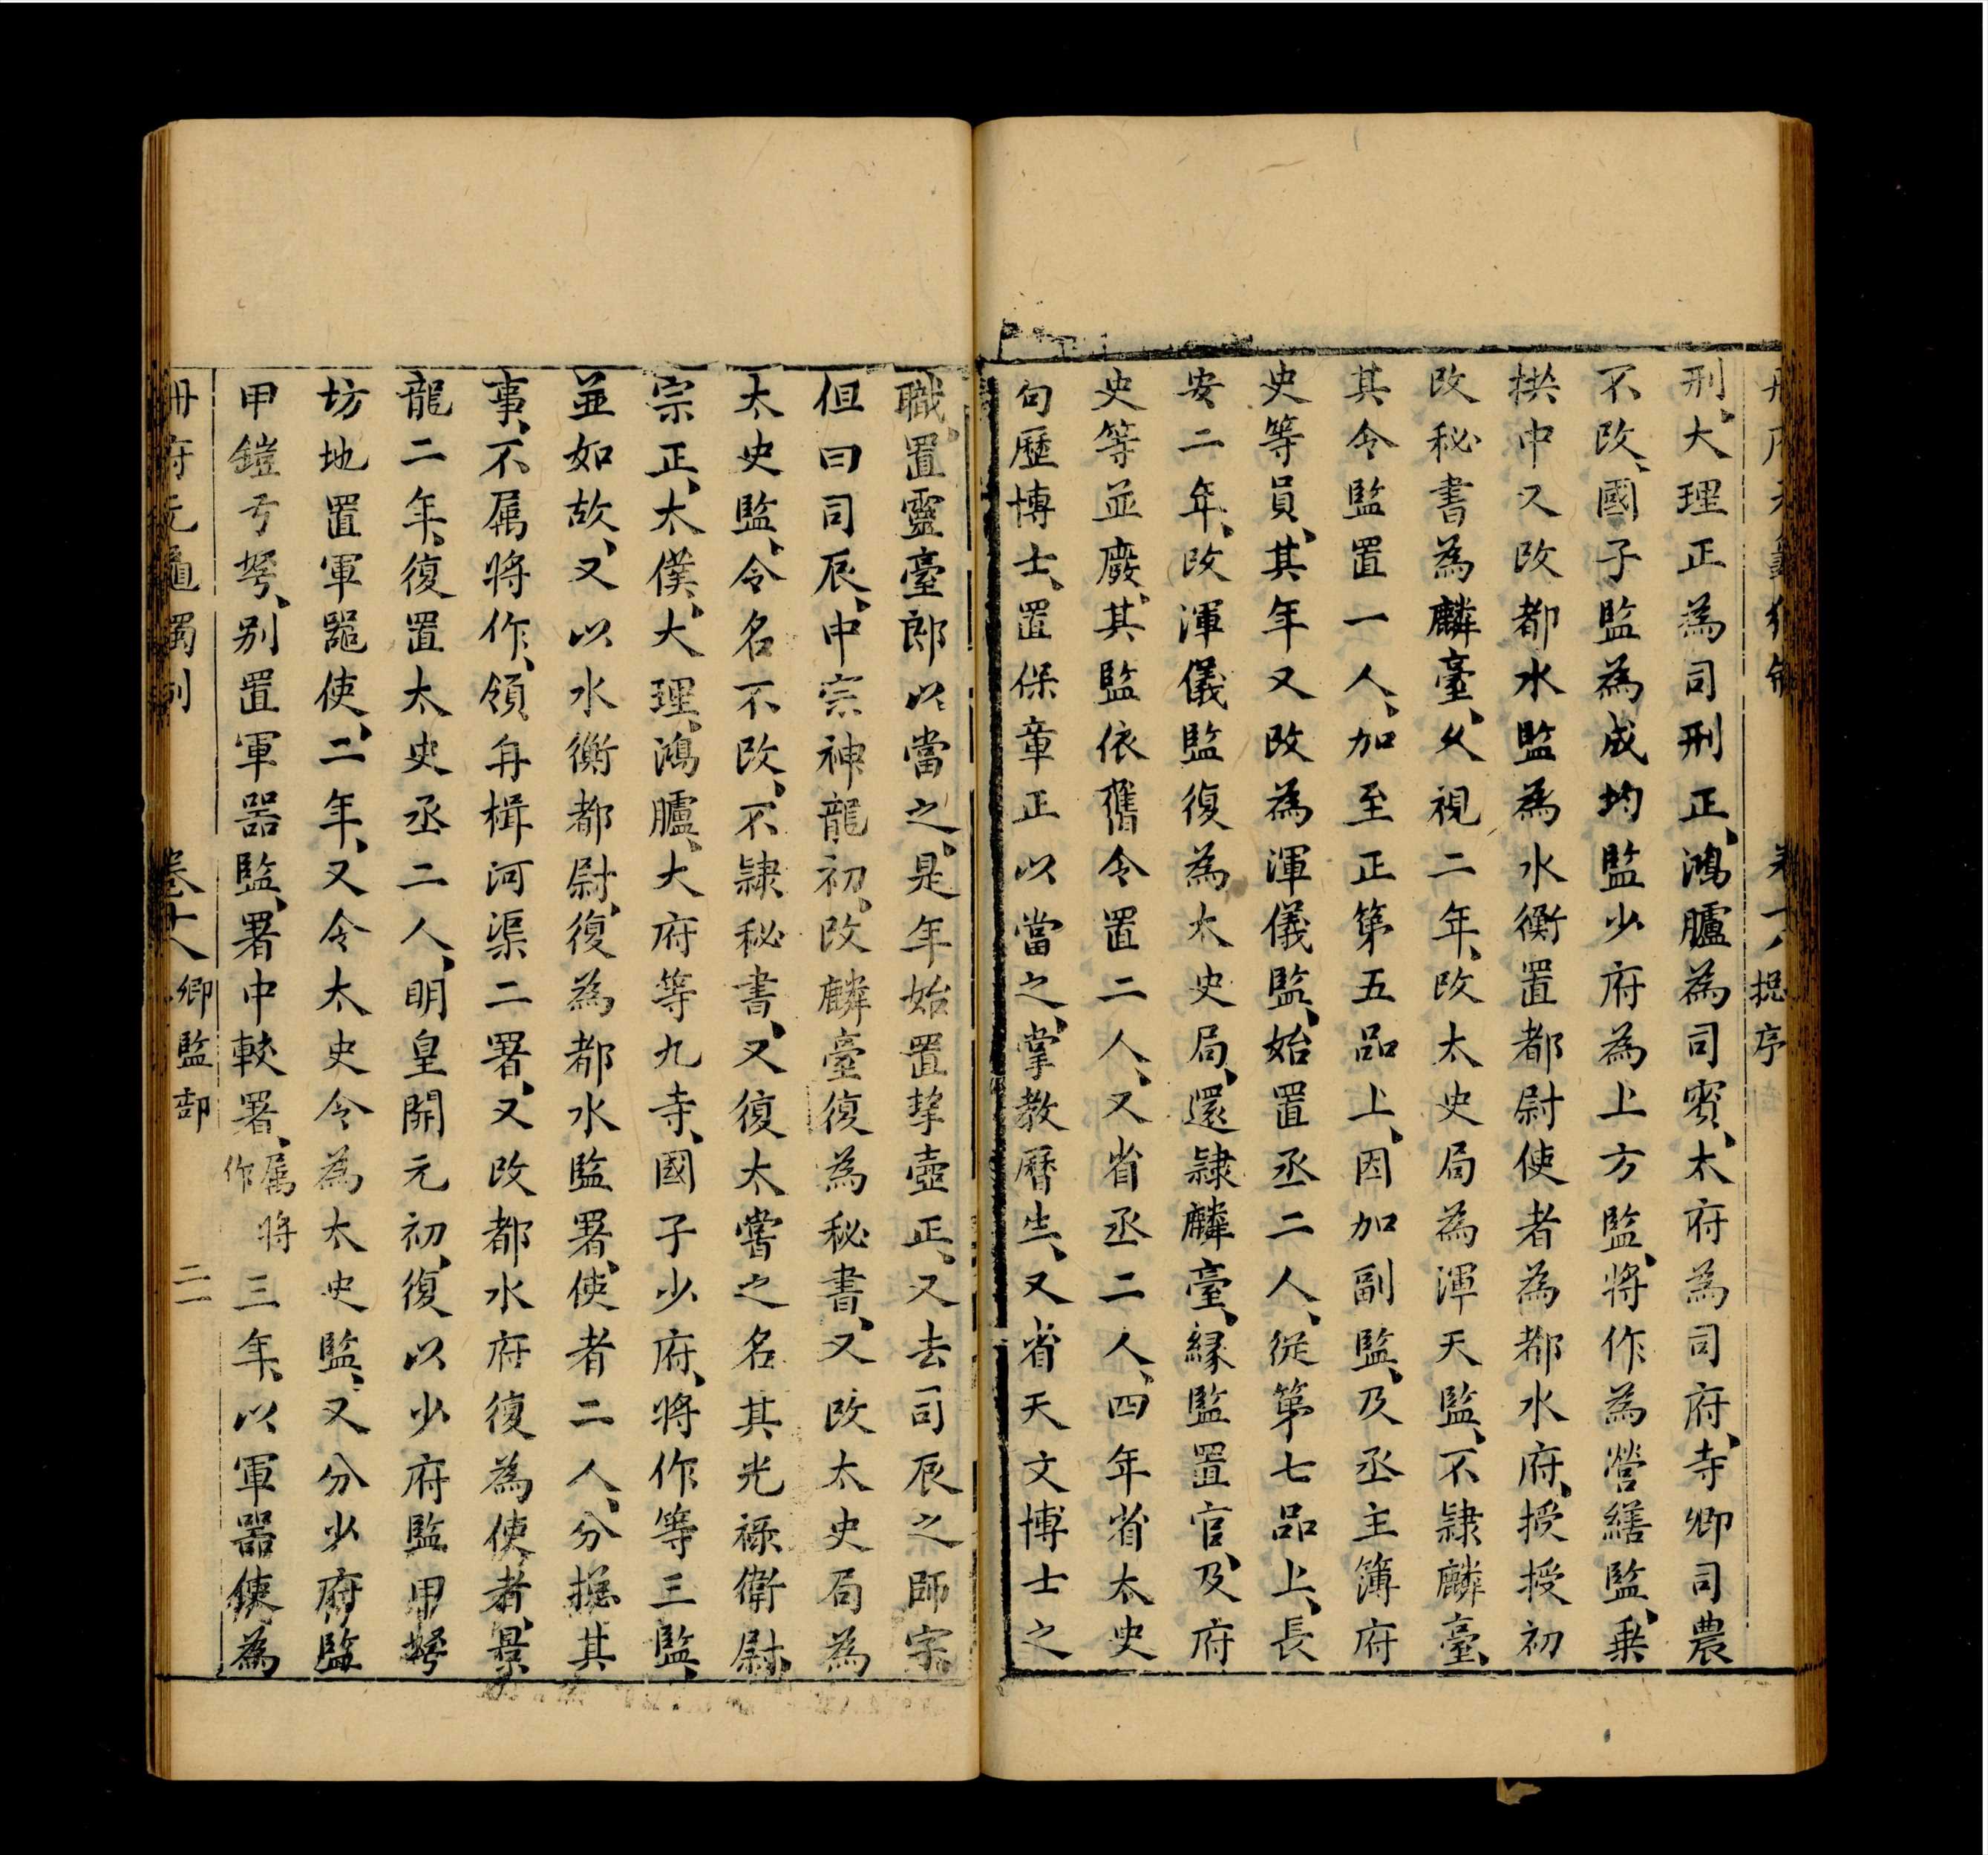 卷十八 揔序
刑、大理正為司刑正、鴻臚為司賓、太府為司府、寺卿司農
不改、國子監為成均監少府為上方監、將作為營繕監、乗
拱中又改都水監為水衡置都尉使者為都水府、授授初
改秘書為麟臺、久視二年、改太史局為渾天監、不隷麟臺、
其令監置一人、加至正第五品上、因加副監、及丞主簿府
史等員、其年又改為渾儀監、始置丞二人、從第七品上、長
安二年、改渾儀監復為太史局、還隷麟臺、縁監置官、及府
史等並廢、其監依舊令置二人、又省丞二人、四年省太史
句歷博士、置保章正以當之、掌教曆生、又省天文博士之
職、置靈臺郎以當之、是年始置挈壺正、又去司辰之師字、
但曰司辰、中宗神龍初、改麟臺復為秘書、又改太史局為
太史監、令名不改、不隷秘書、又復太嘗之名其光祿衛尉、
宗正、太僕、大理、鴻臚、大府等九寺、國子少府、將作等三監、
並如故、又以水衡都尉、復為都水監署、使者二人、分揔其
事、不屬將作、領舟楫河渠二署、又改都水府復為使者、景
龍二年、復置太史丞二人、明皇開元初、復以少府監甲弩
坊地置軍噐使、二年、又令太史令為太史監、又分少府監
甲鎧弓弩、別置軍器監、署中較署、屬將作三年、以軍器使為
冊府元龜獨制 卷十八 卿監部 二